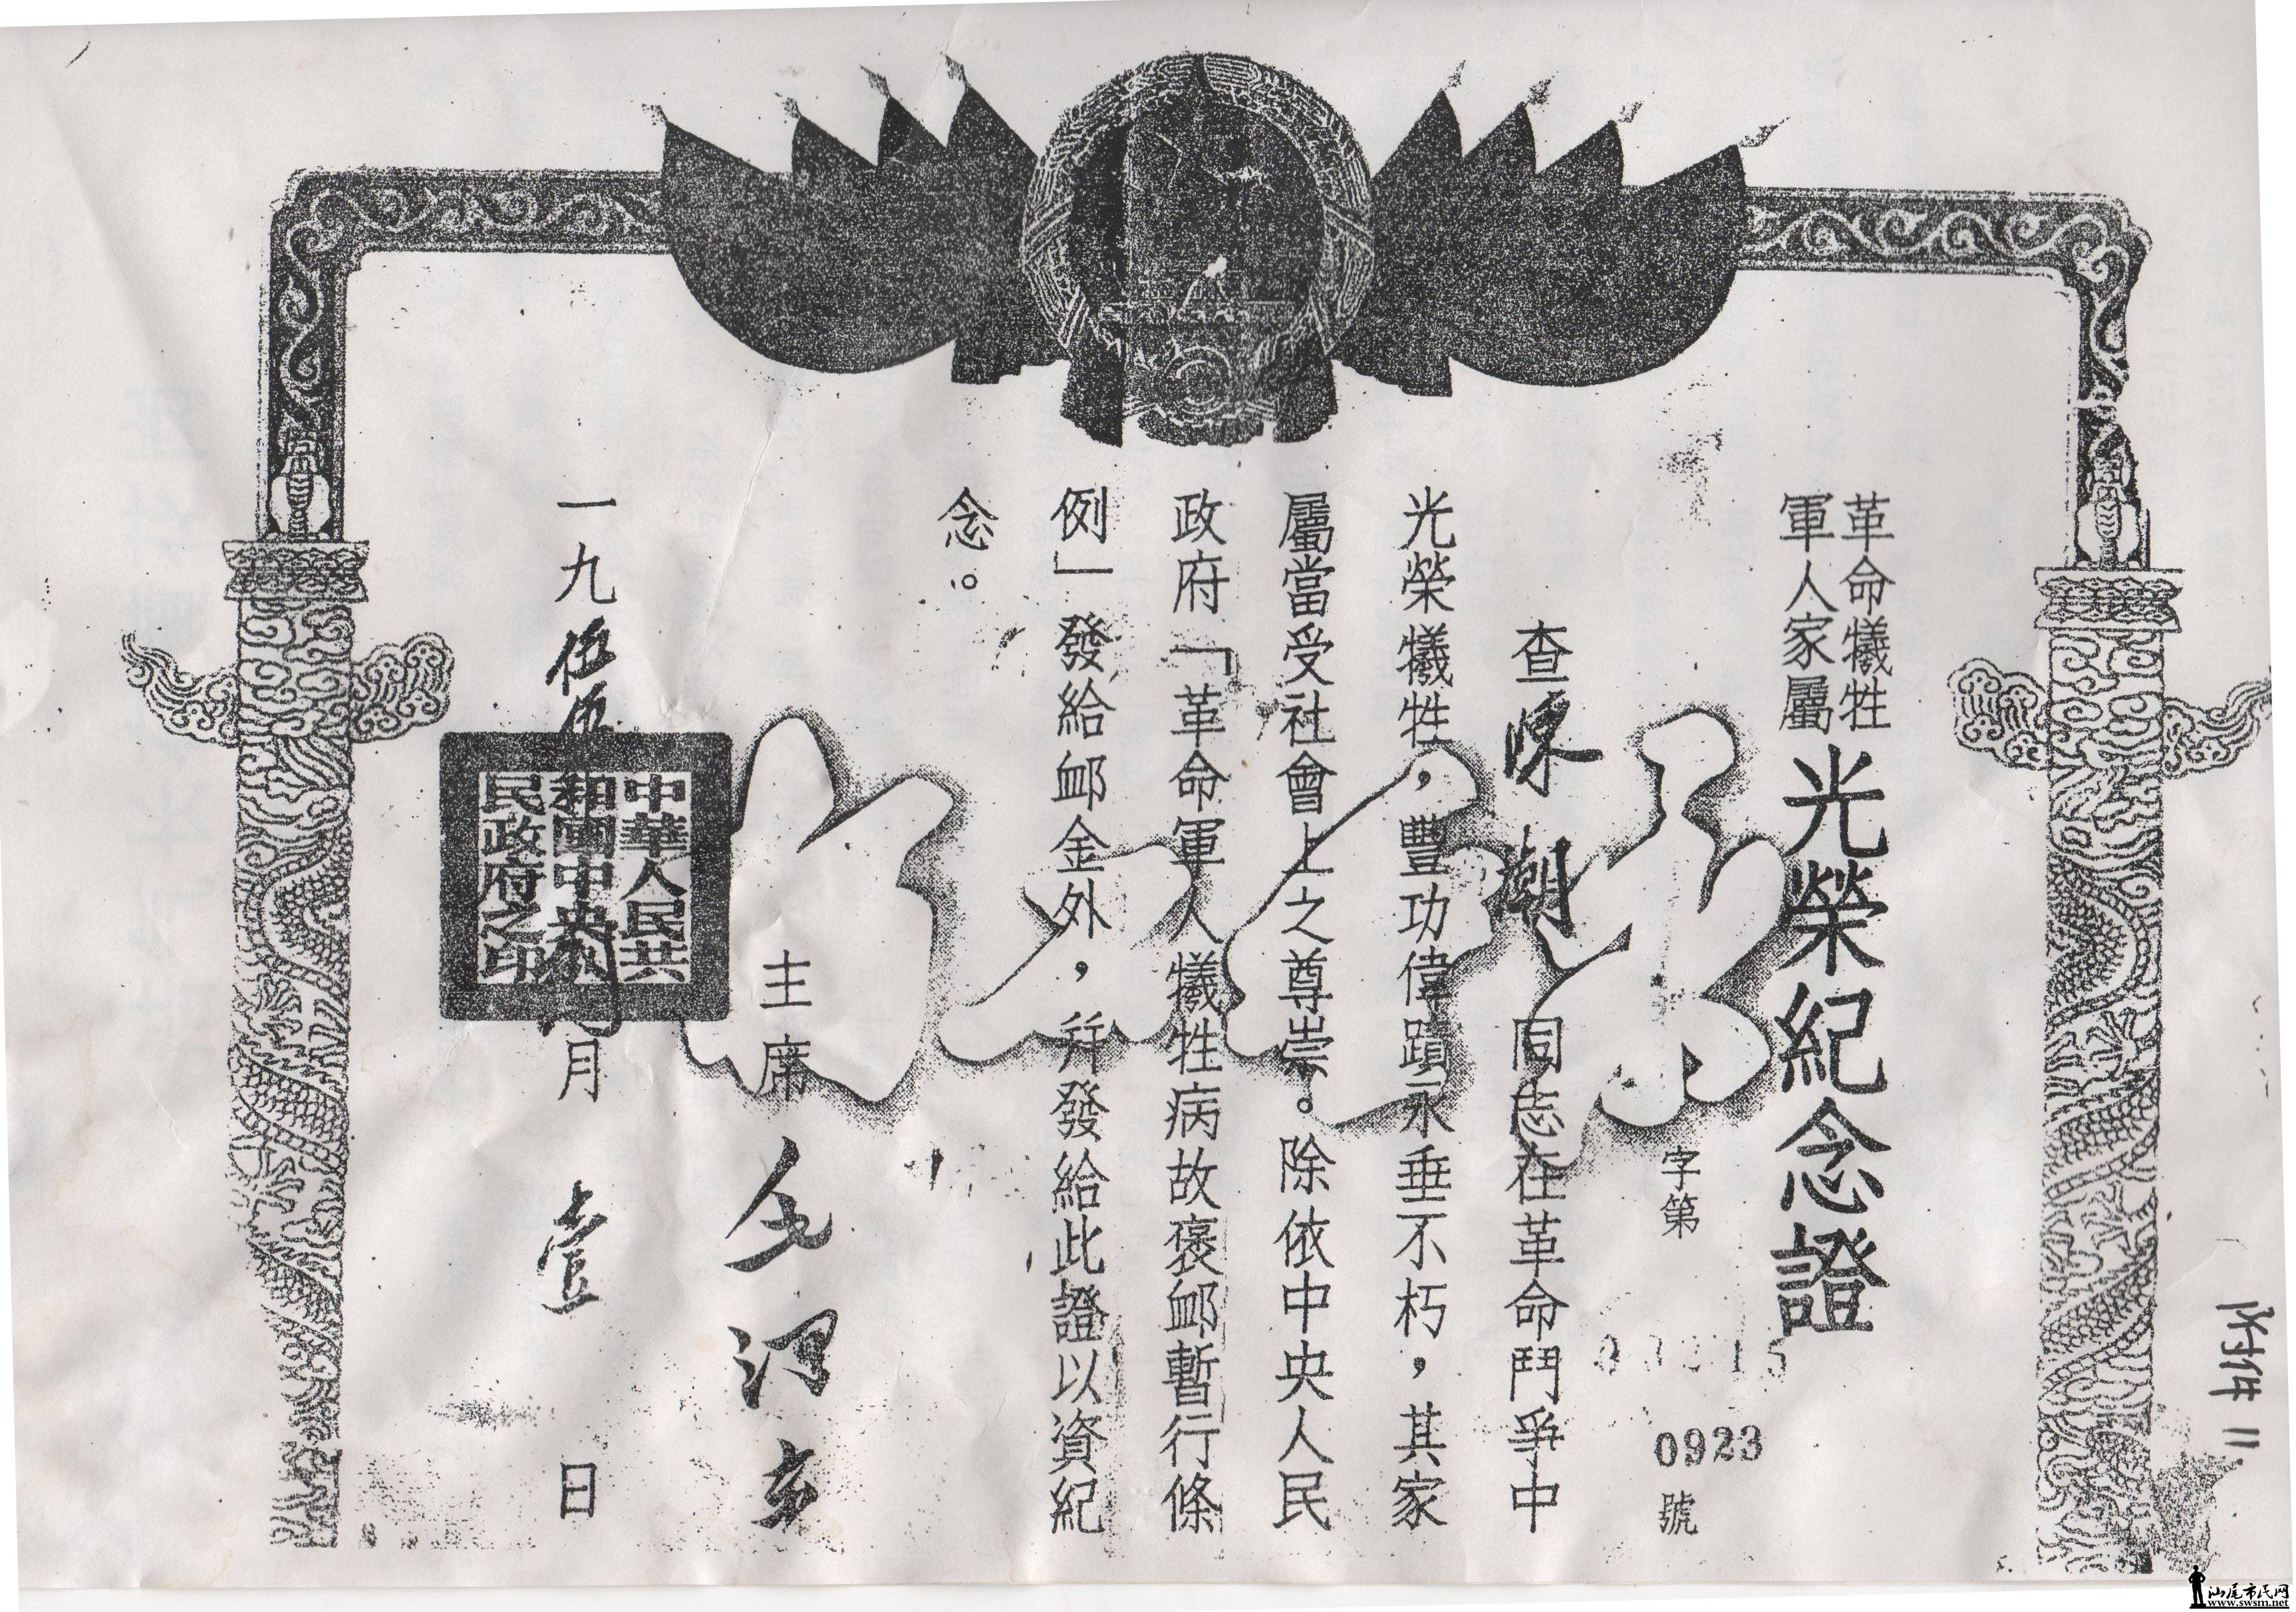 革命犧牲
軍人家屬
光榮紀念證
字第
0923
號
查陳潮同志在革命鬥爭中
光榮犧牲，豐功偉蹟永垂不朽，其家
屬當受社會上之尊崇。除依中央人民
政府「革命軍人犧牲病故褒卹暫行條
例」發給卹金外，幷發給此證以資紀
念。
主席毛澤东
一九伍伍
月壹日
中華人民共
和國中央人
民政府之印
附件11
汕尾市民网
www.swsm.net